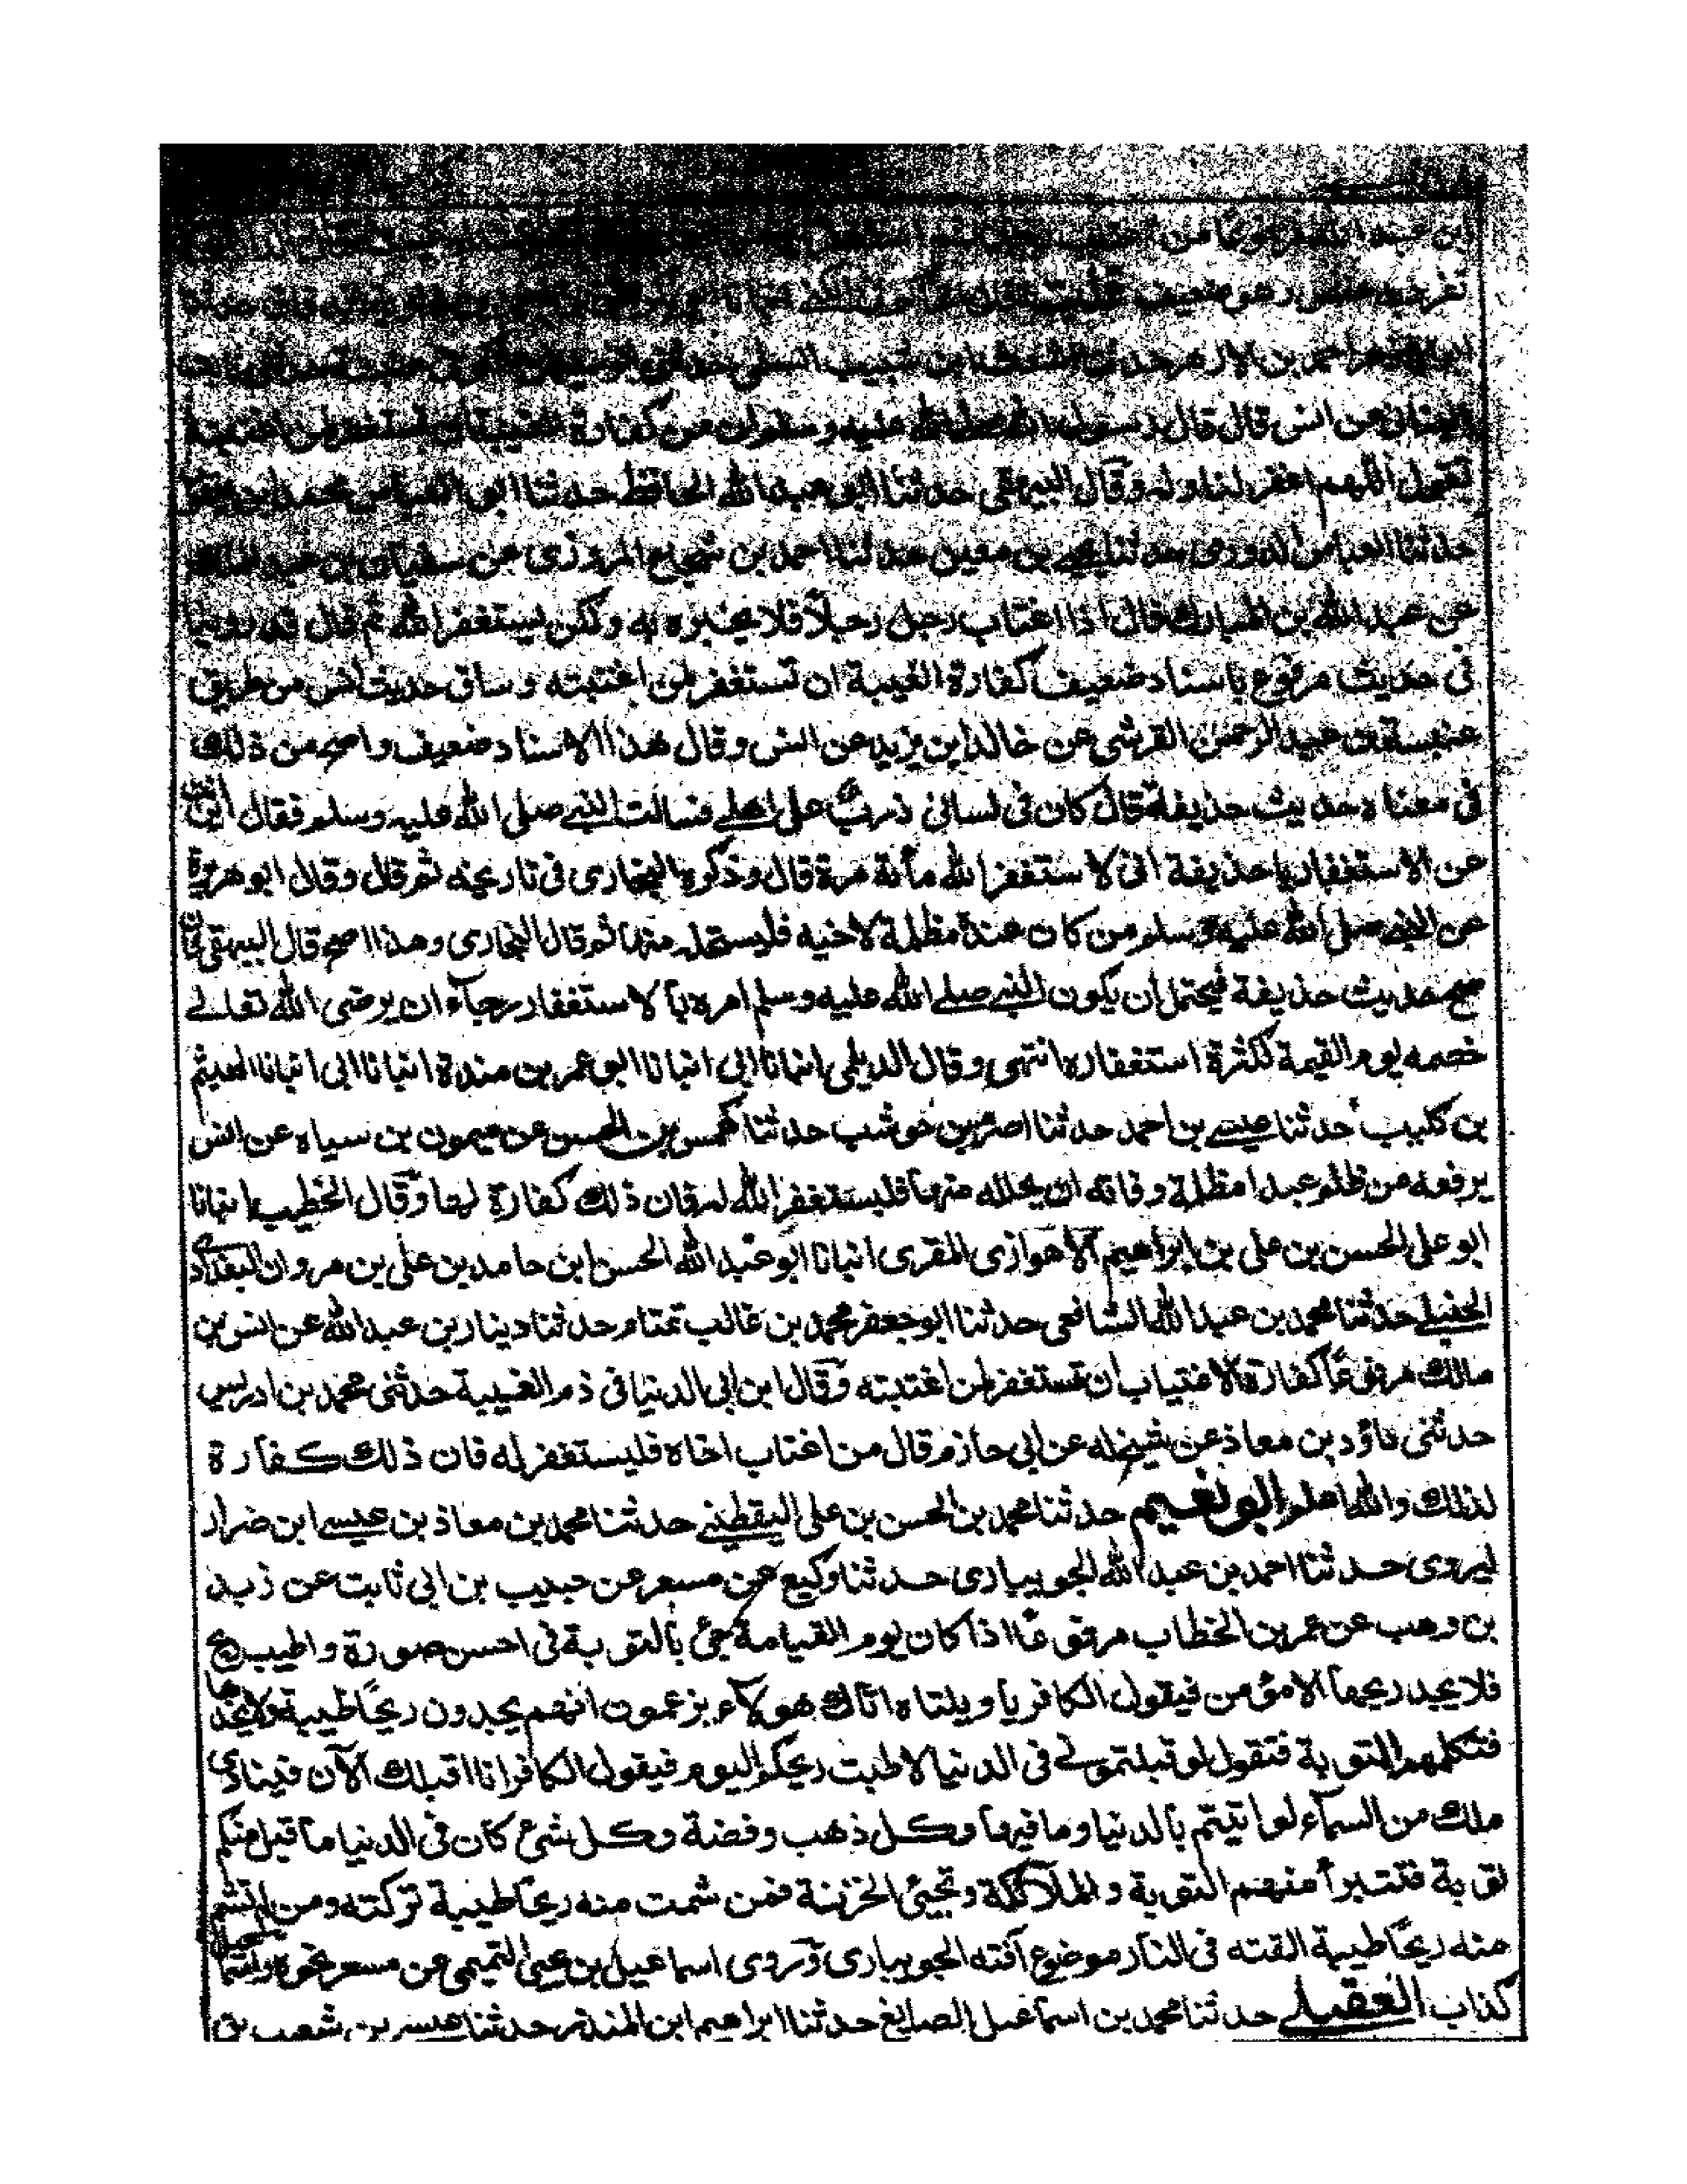 مرفوعا من
تفرد به وهو ضعيف
احمد بن الازهر حدثنا ابن شبيب السلمي
عن انس قال قال رسول الله صلى الله عليه وسلم ان من كفارة الغيبة ان تستغفر لمن اغتبته
تقول اللهم اغفر لنا وله وقال البيهقي حدثنا ابو عبد الله الحافظ حدثنا ابو العباس محمد بن يعقوب
حدثنا العباس الدوري حدثنا يحيى بن معين حدثنا احمد بن شجاع المروزي عن سفيان بن عبد الملك
عن عبد الله بن المبارك قال اذا اغتاب رجل رجلاً فلا يخبره به ولكن ليستغفر الله ثم قال قد روينا
فى حديث مرفوع باسناد ضعيف كفارة الغيبة ان تستغفر لمن اغتبته وساق حديث انس من طريق
عنبسة بن عبد الرحمن القرشي عن خالد بن يزيد عن انس وقال هذا الاسناد ضعيف واصح من ذلك
فى معناه حديث حذيفة قال كان فى لسانى ذرب على اهلي فسالت النبى صلى الله عليه وسلم فقال اين انت
عن الاستغفار يا حذيفة انى لاستغفر الله مائة مرة قال وذكره البخارى فى تاريخه ثم قال وقال ابو هريرة
عن النبى صلى الله عليه وسلم من كان عنده مظلمة لاخيه فليستحله منها ثم قال البخارى وهذا اصح قال البيهقى
صح حديث حذيفة فيحتمل ان يكون النبى صلى الله عليه وسلم امره بالاستغفار رجاء ان يرضى الله تعالى
خصمه يوم القيمة لكثرة استغفاره انتهى وقال الديلمى انبانا ابى انبانا ابو عمر بن مندة انبانا ابى انبانا الهيثم
بن كليب حدثنا عيسى بن احمد حدثنا اصرم بن حوشب حدثنا كهمس بن الحسن عن ميمون بن سياه عن انس
يرفعه من ظلم عبدا مظلمة وفاته ان يحلله منها فليستغفر الله له فان ذلك كفارة لها وقال الخطيب انبانا
ابو على الحسن بن على بن ابراهيم الاهوازى المقرى انبانا ابو عبد الله الحسن ابن حامد بن على بن مروان البغدادى
الحنبلى حدثنا محمد بن عبد الله الشافعى حدثنا ابو جعفر محمد بن غالب تمتام حدثنا دينار بن عبد الله عن انس بن
مالك مرفوعاً كفارة الاغتياب ان تستغفر لمن اغتبته وقال ابن ابى الدنيا فى ذم الغيبة حدثنى محمد بن ادريس
حدثنى داؤد بن معاذ عن شيخ له عن ابى حازم قال من اغتاب اخاه فليستغفر له فان ذلك كفارة
لذلك والله اعلم ابو نعيم حدثنا محمد بن الحسن بن على اليقطينى حدثنا محمد بن معاذ بن عيسى ابن ضرار
ليروى حدثنا احمد بن عبد الله الجويبارى حدثنا وكيع عن مسعر عن حبيب بن ابى ثابت عن زيد
بن وهب عن عمر بن الخطاب مرفوعاً اذا كان يوم القيامة جئ بالتوبة فى احسن صورة واطيب ريح
فلا يجد ريحها الا مؤمن فيقول الكافر يا ويلتاه اتاك هولاء يزعمون انهم يجدون ريحاً طيبة ولا يجدها
فتكلمهم التوبة فتقول لو قبلتمونى فى الدنيا لاطبت ريحكم اليوم فيقول الكافر انا اقبلك الآن فينادى
ملك من السماء لو اتيتم بالدنيا وما فيها وكل ذهب وفضة وكل شئ كان فى الدنيا ما قبل منكم
توبة فتتبرأ منهم التوبة والملائكة وتجئ الخزنة فمن شمت منه ريحاً طيبة تركته ومن لم تشم
منه ريحاً طيبة القته فى النار موضوع آفته الجويبارى وروى اسماعيل بن يحيى التيمى عن مسعر نحوه واسماعيل
كذاب العقيلى حدثنا محمد بن اسماعيل الصايغ حدثنا ابراهيم ابن المنذر حدثنا عيسى بن شعيب بن